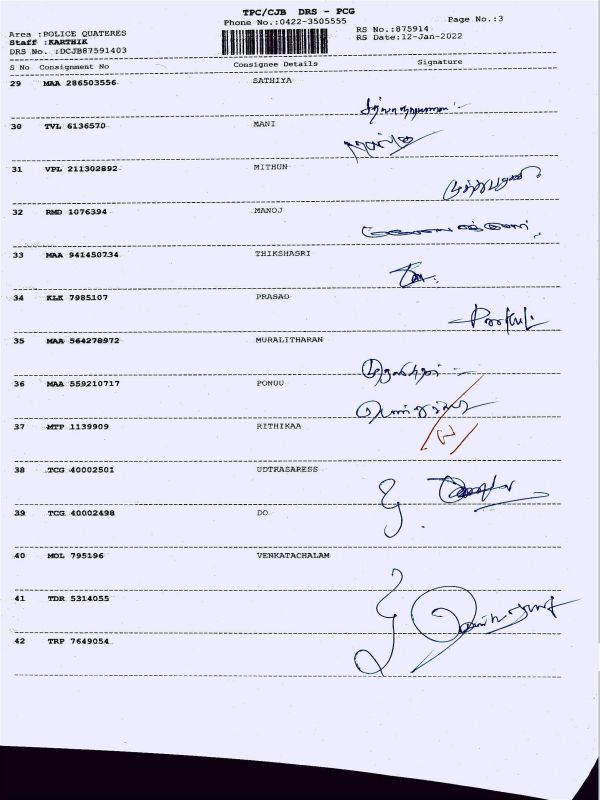 TPC/CJB DRS - PCG
Phone No.:0422-3505555
Page No.:3
Area :POLICE QUATERES
RS No.:875914
Staff :KARTHIK
RS Date:12-Jan-2022
DRS No. :DCJB87591403
S No Consignment No Consignee Details Signature
29 MAA 286503556 SATHIYA
30 TVL 6136570 MANI
31 VPL 211302892 MITHUN
32 RMD 1076394 MANOJ
33 MAA 941450734 THIKSHASRI
34 KLK 7985107 PRASAD
35 MAA 564278972 MURALITHARAN
36 MAA 559210717 PONUU
37 MTP 1139909 RITHIKAA
38 TCG 40002501 UDTRASARESS
39 TCG 40002498 DO
40 MOL 795196 VENKATACHALAM
41 TDR 5314055
42 TRP 7649054